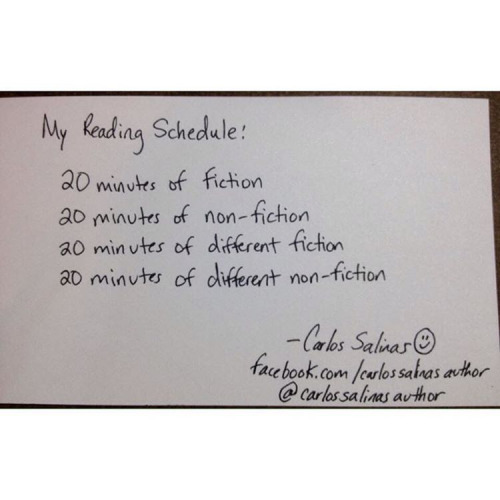 My Reading Schedule:
20 minutes of fiction
20 minutes of non-fiction
20 minutes of different fiction
20 minutes of different non-fiction
-Carlos Salinas
facebook.com/carlossalinas author
@carlossalinas author